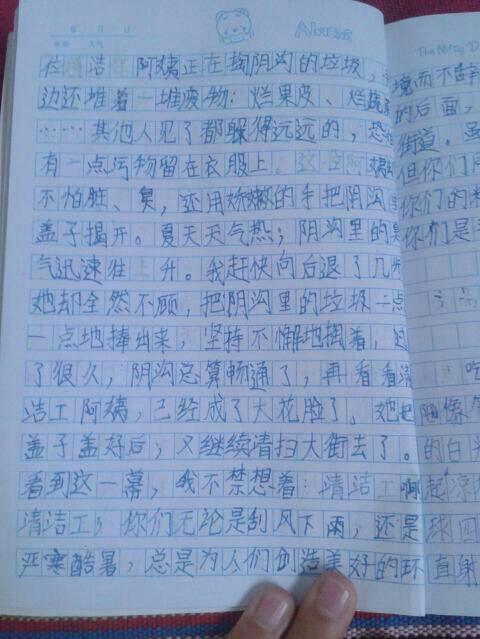 位清洁工阿姨正在掏阴沟的垃圾，
边还堆着一堆废物：烂果皮、烂蔬菜
……其他人见了都躲得远远的，恐怕
有一点污物留在衣服上。这位阿姨
不怕脏、臭，还用娇嫩的手把阴沟里
盖子揭开。夏天天气热；阴沟里的臭
气迅速往上升。我赶快向后退了几步
她却全然不顾，把阴沟里的垃圾一点
一点地捧出来，坚持不懈地掏着，过
了很久，阴沟总算畅通了，再看看清
洁工阿姨，已经成了大花脸了。她把
盖子盖好后；又继续清扫大街去了。
看到这一幕，我不禁想着：清洁工啊
清洁工，你们无论是刮风下雨，还是
严寒酷暑，总是为人们创造美好的环
境而不辞
的后面，
街道。虽
但你们
你们的
你们是
吃
陶像
的白
起凉
球四
直射